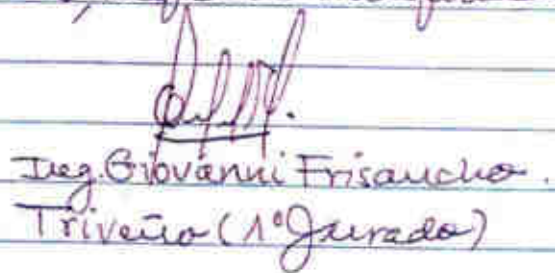 Ing. Giovanni Frisancho.
Triveño (1º Jurado)